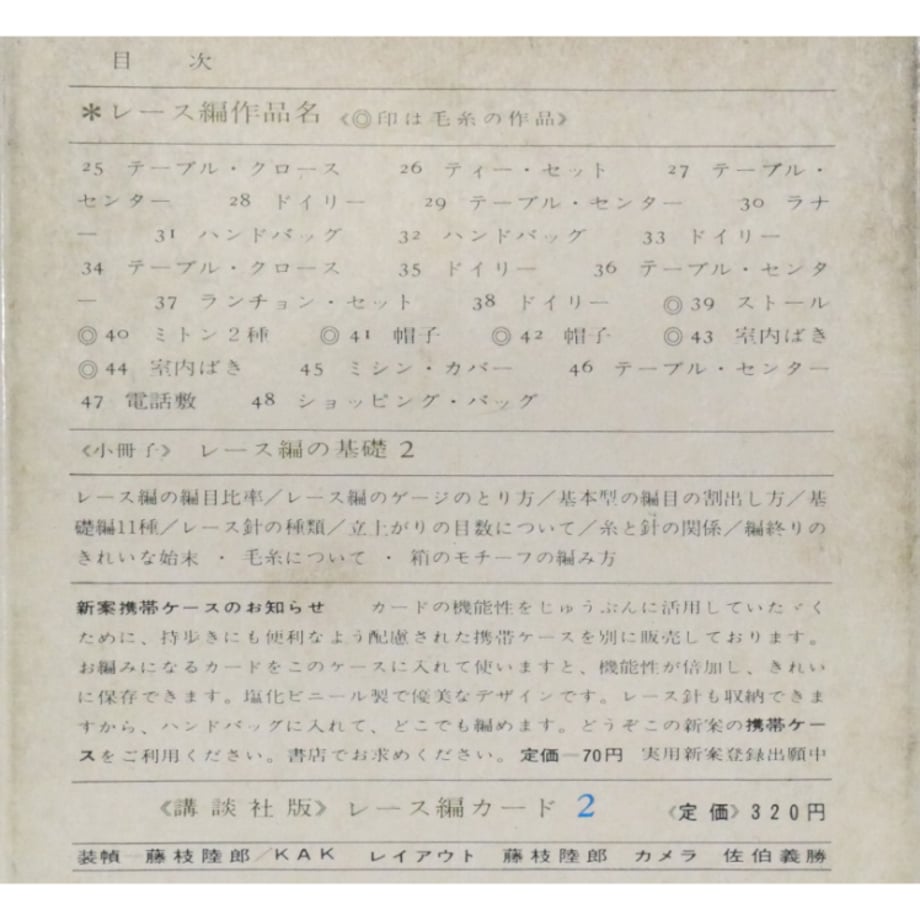 目　次
＊レース編作品名《◎印は毛糸の作品》
25 テーブル・クロース　26 ティー・セット　27 テーブル・
センター　28 ドイリー　29 テーブル・センター　30 ラナ
ー　31 ハンドバッグ　32 ハンドバッグ　33 ドイリー
34 テーブル・クロース　35 ドイリー　36 テーブル・センタ
ー　37 ランチョン・セット　38 ドイリー　◎39 ストール
◎40 ミトン2種　◎41 帽子　◎42 帽子　◎43 室内ばき
◎44 室内ばき　45 ミシン・カバー　46 テーブル・センター
47 電話敷　48 ショッピング・バッグ
《小冊子》　レース編の基礎 2
レース編の編目比率／レース編のゲージのとり方／基本型の編目の割出し方／基
礎編11種／レース針の種類／立上がりの目数について／糸と針の関係／編終りの
きれいな始末 ・ 毛糸について ・ 箱のモチーフの編み方
新案携帯ケースのお知らせ　カードの機能性をじゅうぶんに活用していたゞく
ために、持歩きにも便利なよう配慮された携帯ケースを別に販売しております。
お編みになるカードをこのケースに入れて使いますと、機能性が倍加し、きれい
に保存できます。塩化ビニール製で優美なデザインです。レース針も収納できま
すから、ハンドバッグに入れて、どこでも編めます。どうぞこの新案の携帯ケー
スをご利用ください。書店でお求めください。定価―70円　実用新案登録出願中
《講談社版》レース編カード 2　《定価》320円
装幀　藤枝陸郎／KAK　レイアウト　藤枝陸郎　カメラ　佐伯義勝